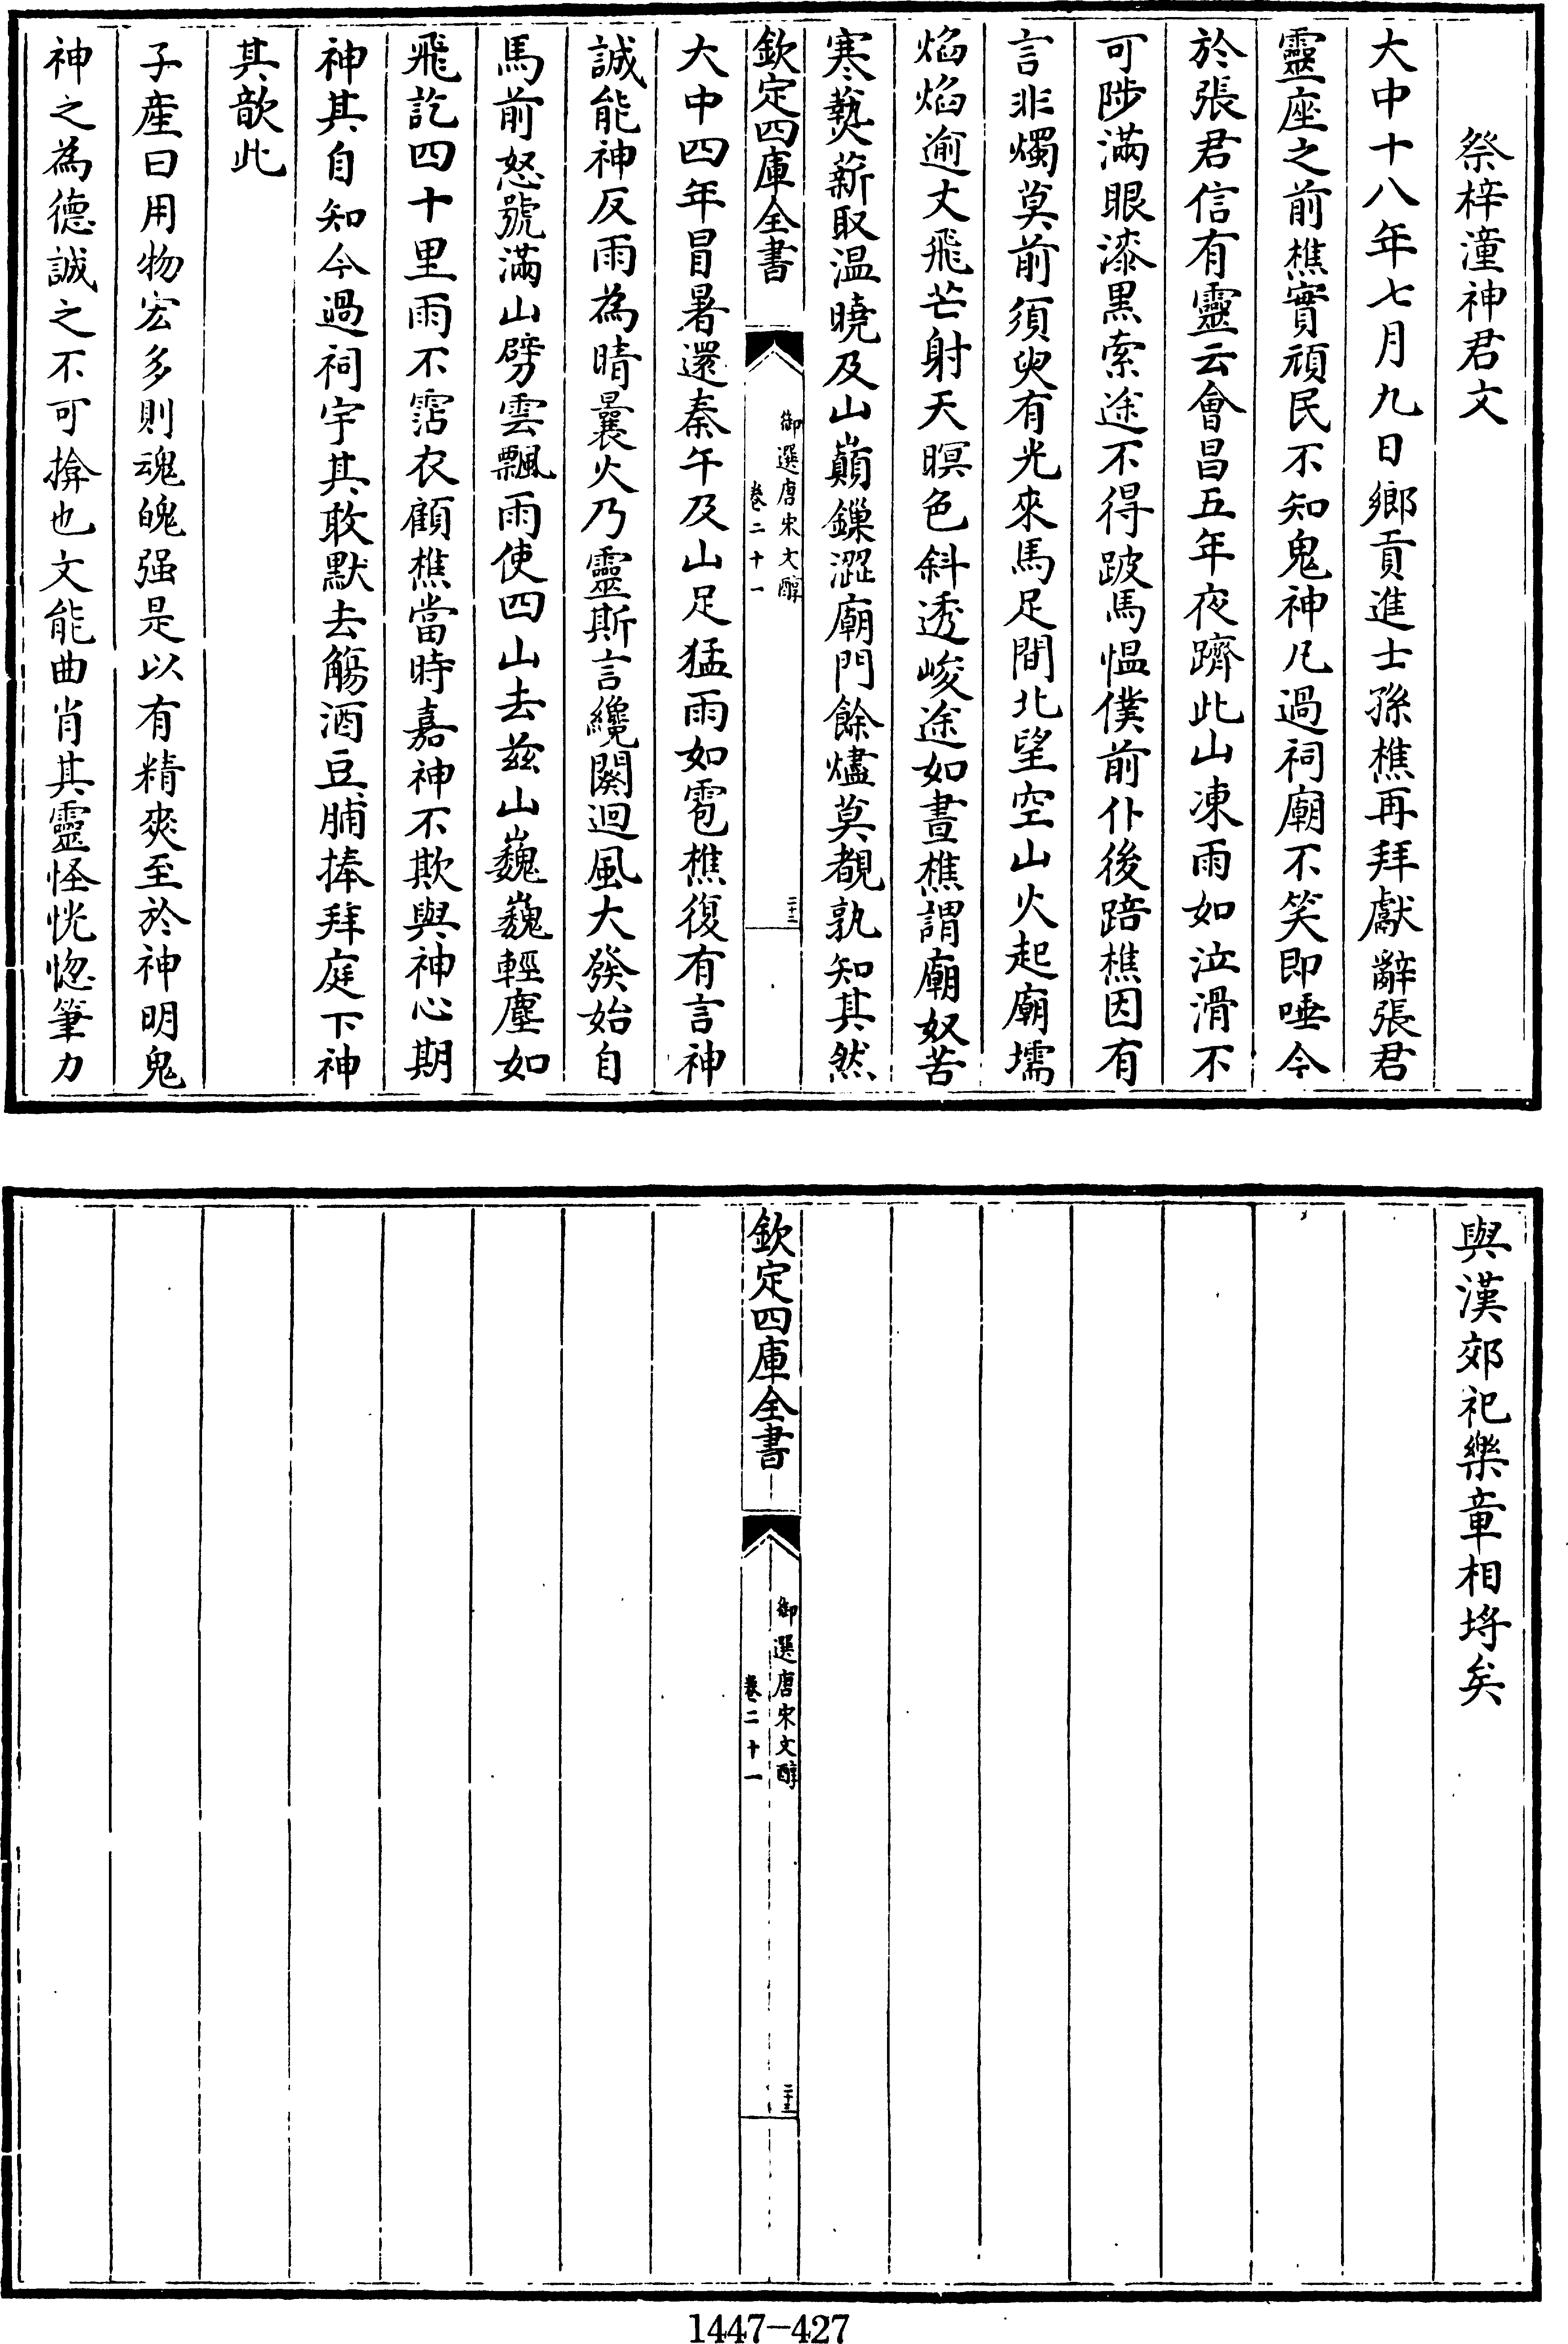 祭梓潼神君文
大中十八年七月九日鄉貢進士孫樵再拜獻辭張君
靈座之前樵實頑民不知鬼神凡過祠廟不笑即唾今
於張君信有靈云會昌五年夜躋此山凍雨如泣滑不
可陟滿眼漆黒索途不得跛馬愠僕前仆後踣樵因有
言非燭莫前須臾有光來馬足間北望空山火起廟壖
焰焰逾丈飛芒射天暝色斜透峻途如晝樵謂廟奴苦
寒爇薪取温曉及山巔鏁澀廟門餘燼莫覩孰知其然
欽定四庫全書
御選唐宋文醇
卷二十一
二十三
大中四年冒暑還秦午及山足猛雨如雹樵復有言神
誠能神反雨為晴曩火乃靈斯言纔闋迴風大發始自
馬前怒號滿山劈雲飄雨使四山去兹山巍巍輕塵如
飛訖四十里雨不霑衣顧樵當時嘉神不欺與神心期
神其自知今過祠宇其敢默去觴酒豆脯捧拜庭下神
其歆此
子産曰用物宏多則魂魄强是以有精爽至於神明鬼
神之為德誠之不可揜也文能曲肖其靈怪恍惚筆力
與漢郊祀樂章相埒矣
欽定四庫全書
御選唐宋文醇
卷二十一
二十三
1447-427